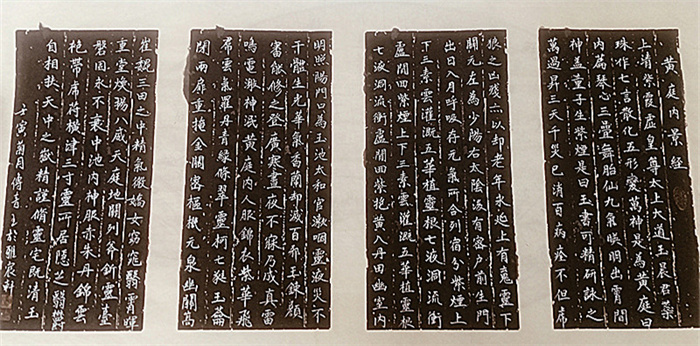 黄庭内景經
上清紫霞虚皇尊太上大道玉宸君蘂
珠作七言散化五形變萬神是為黄庭曰
内篇琴心三疊舞胎仙九氣暎明出霄間
神盖童子生紫煙是曰玉書可精研詠之
萬過昇三天千災已消百病痊不但席
狼之凶殘六以却老年永延上有魂靈下
關元左為少陽右太陰後有密户前生門
出日入月呼吸存元氣所合列宿分紫煙上
下三素雲灌溉五華植靈根七液洞流衝
虛間四紫煙上下三素雲灌溉五華植靈根
七液洞流衝虛間四紫抱黄入丹田幽室内
明照陽門口為玉池太和官漱咽靈液災不
干體生光華氣香蘭却滅百邪玉錬顏
審能修之登廣寒晝夜不寐乃成真雷
鳴電激神泯黄庭内人服錦衣紫華飛
裙雲氣羅丹青緑條翠靈柯七蕤玉籥
閉兩扉重掩金關密樞機元泉幽關高
崔巍三田之中精氣微嬌女窈窕翳霄暉
重堂煥揚八威天庭地關列斧斤靈臺
磐固永不衰中池内神服赤朱丹錦雲
袍帶席符横津三寸靈所居隱芝翳鬱
自相扶天中之嶽精謹脩靈宅既清玉
壬寅菊月傅 書於雅宸軒